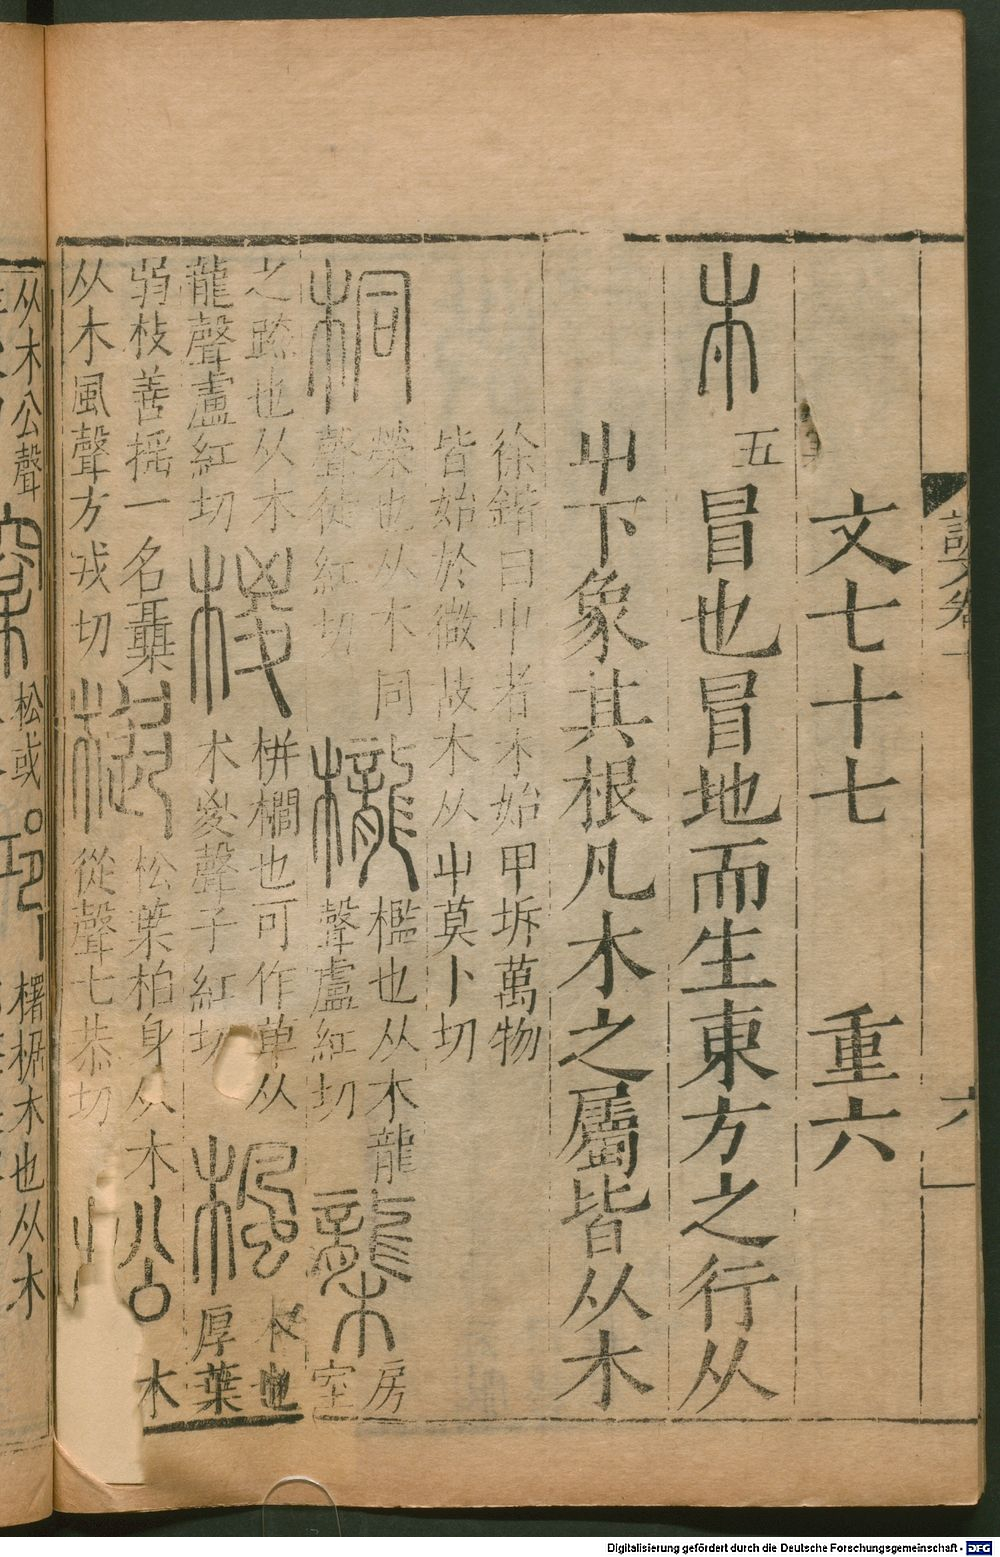 說文卷一 六
文七十七 重六
木 五 冒也冒地而生東方之行从
屮下象其根凡木之屬皆从木
徐鍇曰屮者木始甲坼萬物
皆始於微故木从屮莫卜切
桐 榮也从木同 櫳 檻也从木龍 櫳 房
聲徒紅切 聲盧紅切 室
之䟽也从木 椶 栟櫚也可作萆从 楓 木也
龍聲盧紅切 木㚇聲子紅切 厚葉
弱枝善摇一名 樅 松葉柏身从木 松 木
从木風聲方戎切 從聲七恭切
从木公聲 松或 木也从木
Digitalisierung gefördert durch die Deutsche Forschungsgemeinschaft - DFG